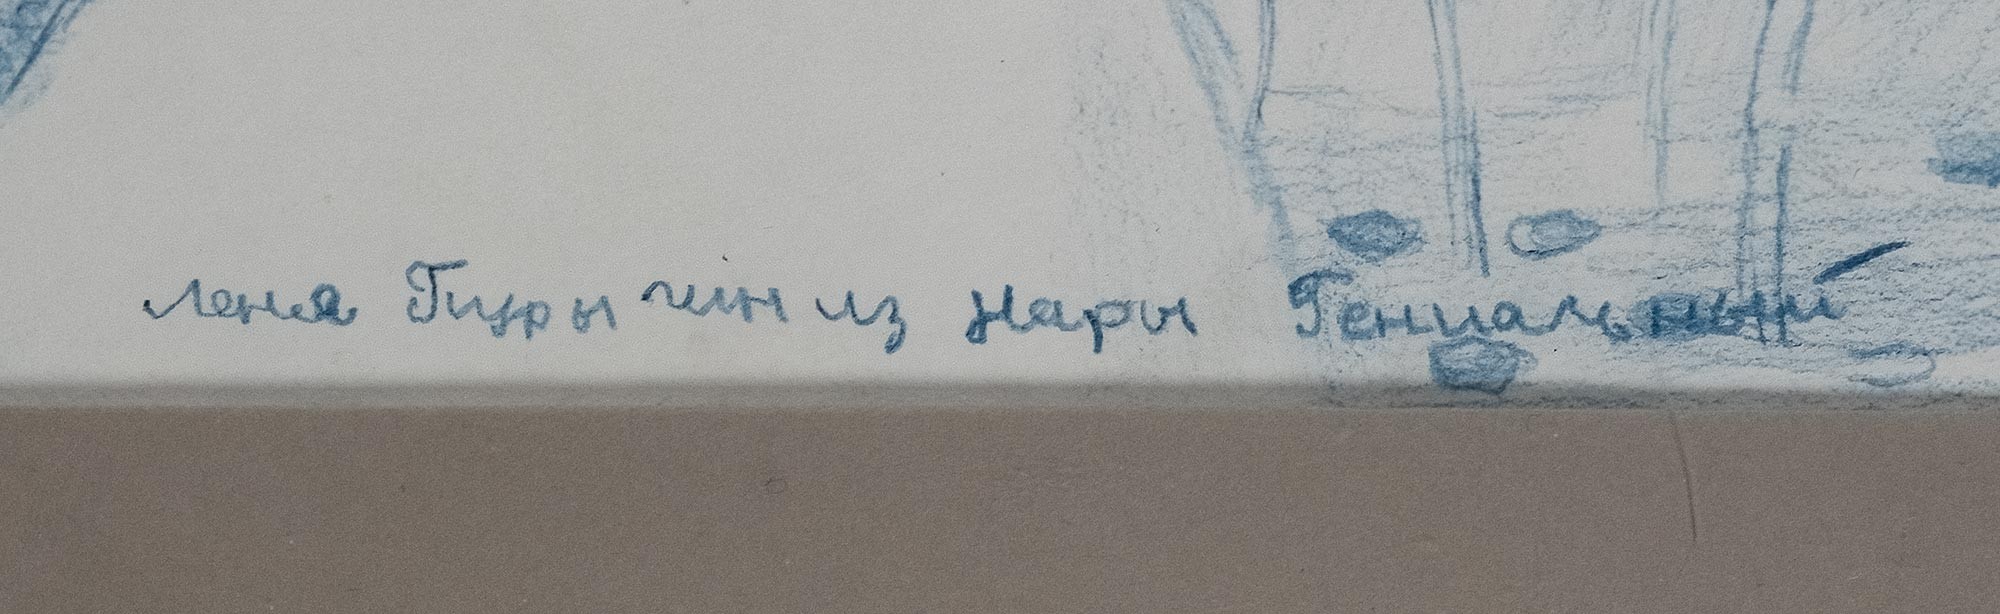 Леня Пурыгин из Нары Гениальный